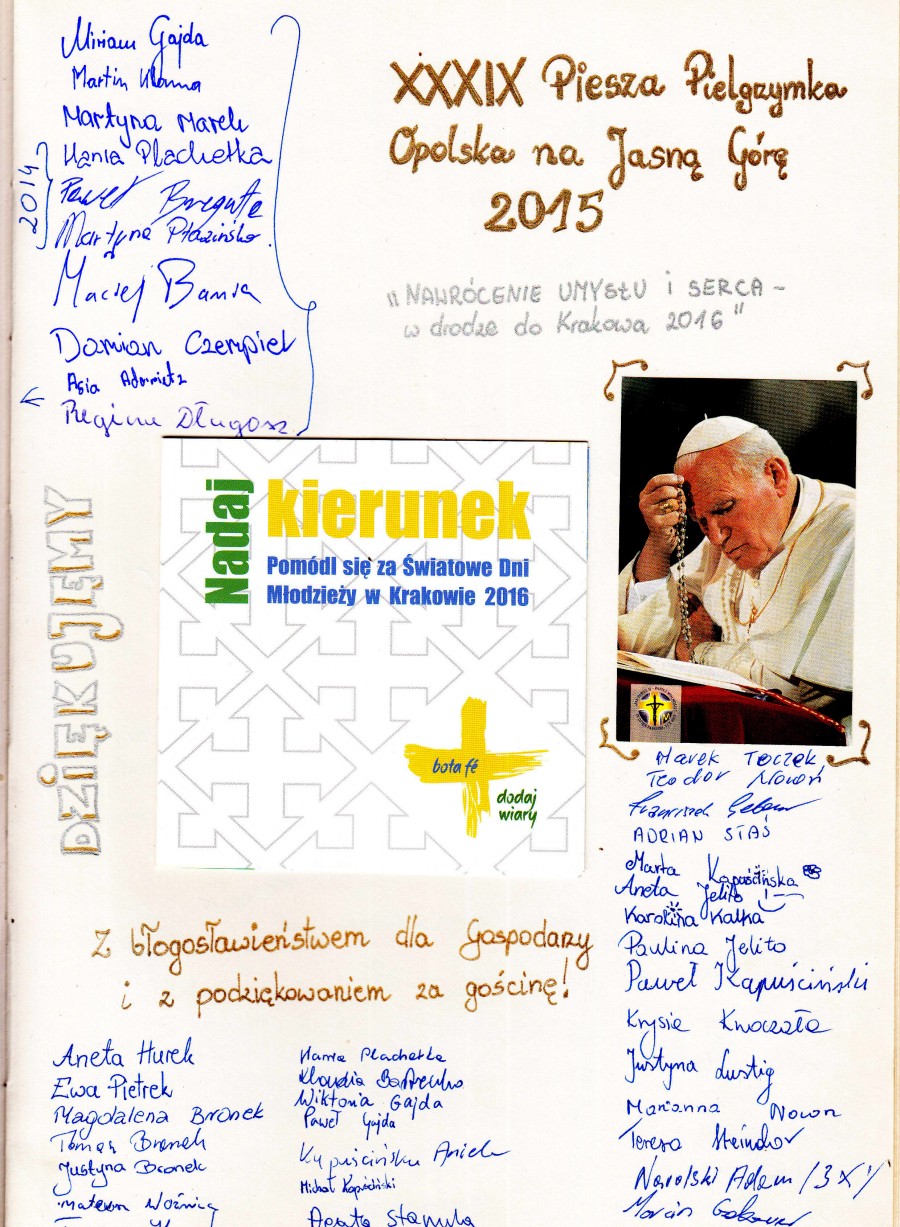 Miriam Gajda
Martin
Martyna Marek
Hania Plachetka
2014
Paweł
Martyna Płazińska
Maciej Bania
Damian Czempiel
Asia Adamietz
Regina Długosz
XXXIX Piesza Pielgrzymka
Opolska na Jasną Górę
2015
"NAWRÓCENIE UMYSŁU i SERCA -
w drodze do Krakowa 2016"
DZIĘKUJEMY
Nadaj
kierunek
Pomódl się za Światowe Dni
Młodzieży w Krakowie 2016
bota fé
dodaj
wiary
Marek Toczek
Teodor Nowoń
ADRIAN STAŚ
Marta Kapuścińska
Aneta Jelito
Karolina Kalka
Paulina Jelito
Paweł Kapuściński
Krysia Knaczała
Justyna Lustig
Marianna Nowon
Teresa Steindor
Narolski Adam /3 X/
Marcin
Z błogosławieństwem dla Gospodarzy
i z podziękowaniem za gościnę!
Aneta Hurek
Ewa Pietrek
Magdalena Bronek
Tomasz Bronek
Justyna Bronek
Mateusz Woźnica
Hania Plachetka
Klaudia
Wiktoria Gajda
Paweł Gajda
Kapuścińska Aniela
Michał Kapuściński
Agata Stanula